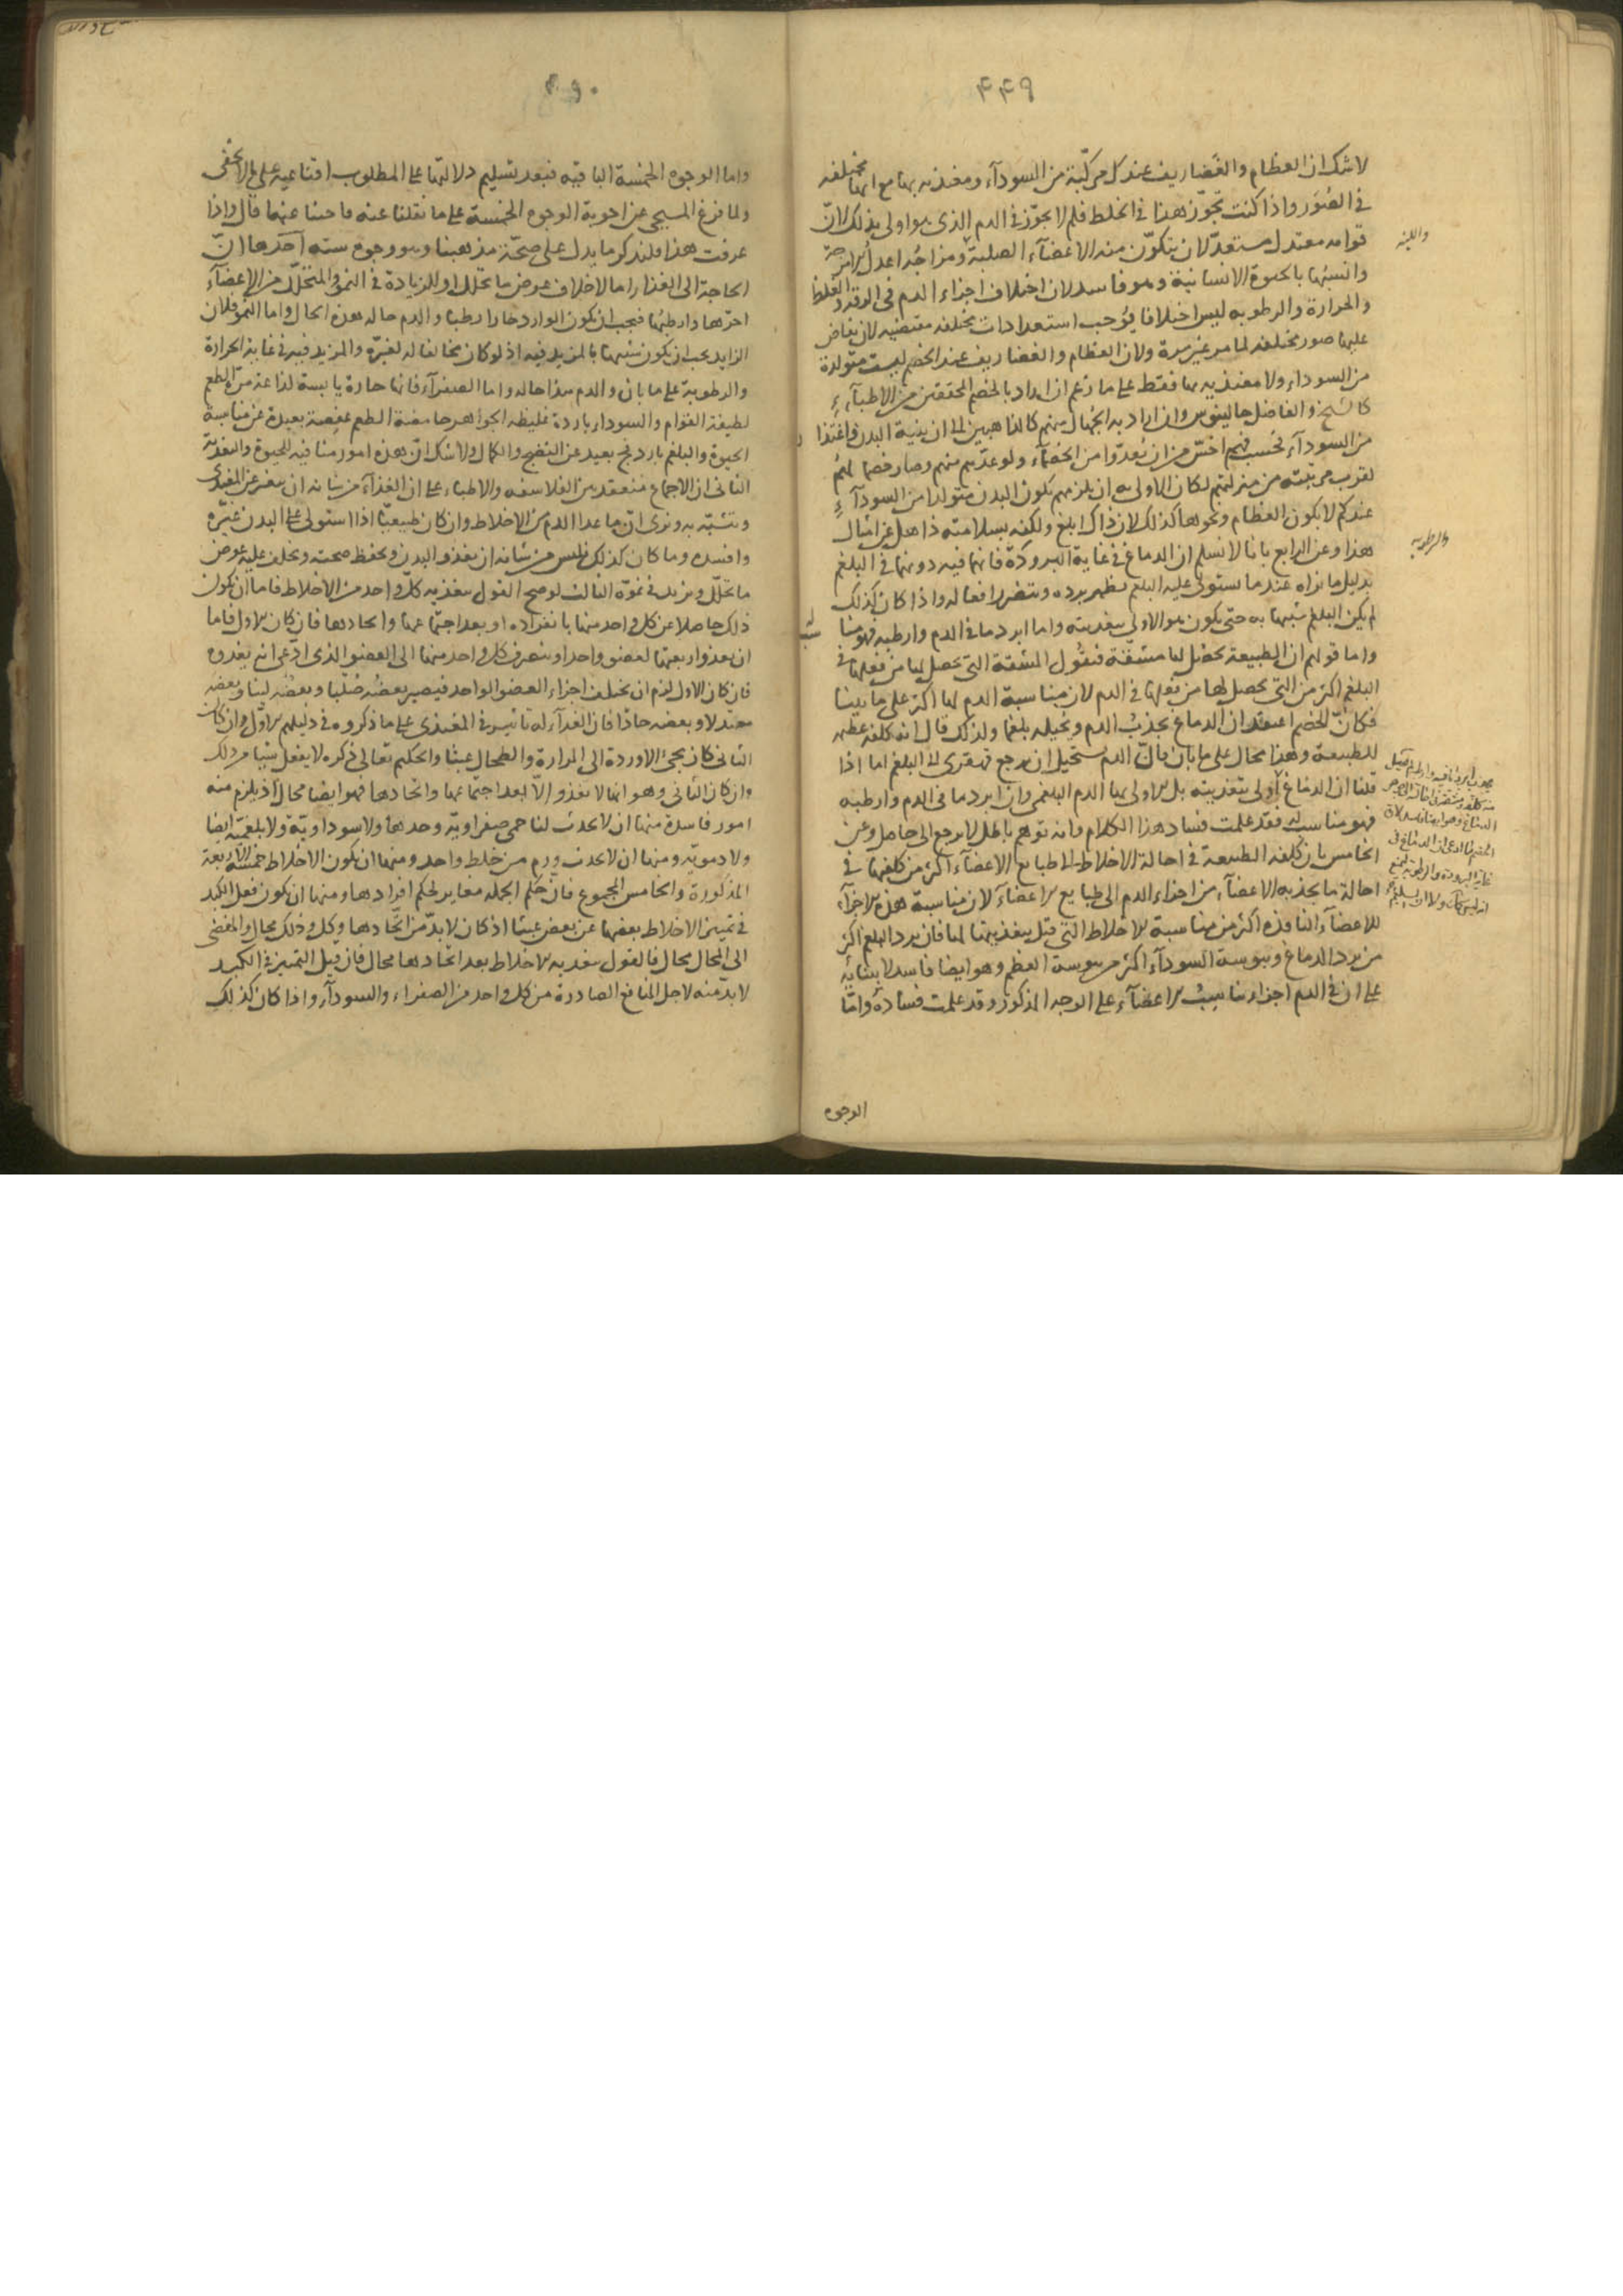 ٤٤٩
لا شك ان العظام والغضاريف عندكم مركبة من السودآء ومغتذية بها مع انها مختلفه
في الصور واذا كنت تجوز هذا في الخلط فلم لا يجوز في الدم الذي هو اولى بذلك لان
قوامه معتدل مستعد لان يتكون منه الاعضآء الصلبة ومزاجه اعدل الامزجة
وانسبها بالحيوة الانسانية وهو فاسد لان اختلاف اجزاء الدم في الرقة والغلظ
والحرارة والرطوبه ليس اختلافا يوجب استعدادات مختلفه مقتضيه لان يفاض
عليها صور مختلفه لما مر غير مرة ولان العظام والغضاريف عند الخصم ليست متولدة
من السوداء ولا مغتذيه بها فقط على ما زعم ان اراد بالخصم المحققين من الاطبآء
كالشيخ والفاضل جالينوس وان اراد به الجهال منهم كالذاهبين الى ان بنية البدن واغتذا
من السودآء فحسب فهم اخس من ان يعدوا من الخصمآء ولو عدهم منهم وصار خصما لهم
لقرب مرتبته من منزلتهم لكان الاولى به ان يلزمهم بكون البدن متولدا من السودآء
عندكم لا بكون العظام ونحوها كذلك لان ذاك ابلغ ولكنه بسلامته ذاهل عن امثال
هذا وعن الرابع بانا لا نسلم ان الدماغ في غاية البرودة فانها فيه دونها في البلغم
بدليل ما نراه عندما يستولي عليه البلغم نظهر برده ويتضرر افعاله واذا كان كذلك
لم يكن البلغم شبيها به حتى يكون هو الاولى بتغديته واما ابرد ما في الدم وارطبه فهو
واما قولهم ان الطبيعة تحصل لها مشقة فنقول المشقة التي تحصل لها من فعلها في
البلغم اكثر من التي يحصل لها من فعلها في الدم لان مناسبة الدم لها اكثر على ما بينا
فكان الخصم اعتقد ان الدماغ يجذب الدم ويحيله بلغما ولذلك قال انه كلفة عظيمه
للطبيعة وهذا محال على ما بان فان الدم يستحيل ان يرجع قهقرى الى البلغم اما اذا
قلنا ان الدماغ اولى بتغديته بل الاولى بها الدم البلغمي وان ابرد ما في الدم وارطبه
فهو مناسب له فقد علمت فساد هذا الكلام وانه توهم باطل لا يرجع الى حاصل وعن
الخامس بان كلفة الطبيعة في احالة الاخلاط الى طبايع الاعضآء اكثر من كلفتها في
احالة ما يجذبه الاعضآء من اجزاء الدم الى طبايع الاعضآء لان مناسبة هذه الاجزآء
للاعضآء النافذة اكثر من مناسبة الاخلاط التي قيل بتغذيتها لها فان برد البلغم اكثر
من برد الدماغ ويبوسة السودآء اكثر من يبوسة العظم وهو ايضا فاسد لابتنايه
على ان في الدم اجزاء تناسب الاعضآء على الوجه المذكور وقد علمت فساده واما
الوجوه
واللينه
والرطوبه
واما الوجوه الخمسة الباقيه فبعد تسليم دلالتها على المطلوب اقناعيه على ما لا يخفى
ولما فرغ المسيحي عن اجوبة الوجوه الخمسة على ما نقلنا عنه فاجبنا عنها قال واذا
عرفت هذا فلنذكر ما يدل على صحة مذهبنا وهو وجوه سته احدها ان
الحاجة الى الغذاء اما لاخلاف عوض ما تحلل او للزيادة في النمو والمتحلل من الاعضآء
احرها وارطبها فيجب ان يكون الوارد حارا رطبا والدم حاله هذه الحال واما النمو فلان
الزايد يجب ان يكون شبيها بالمزيد فيه اذ لو كان مخالفا له لغيره والمزيد فيه في غاية الحرارة
والرطوبة على ما بان والدم هذا حاله واما الصفرآء فانها حارة يابسة لذاعة مرة الطعم
لطيفة القوام والسوداء باردة غليظه الجوهر حامضة الطعم عفصة بعيدة عن مناسبة
الحيوة والبلغم بارد فج بعيد عن النضج والكمال ولا شك ان هذه امور منافيه للحيوة والتغذية
الثاني ان الاجماع منعقد من الفلاسفه والاطباء على ان الغذآء من شانه ان يتغير عن المغتذى
ويتشبه به ونرى ان ما عدا الدم من الاخلاط وان كان طبيعيا اذا استولى على البدن غيره
وافسده وما كان كذلك فليس من شانه ان يغذو البدن ويحفظ صحته ويخلف عليه عوض
ما تحلل ويزيد في نموه الثالث لو صح القول بتغذيه كل واحد من الاخلاط فاما ان يكون
ذلك حاصلا عن كل واحد منها بانفراده او بعد اجتماعها واتحادها فان كان الاول فاما
ان يغذو اربعتها لعضو واحد او ينصرف كل واحد منها الى العضو الذي ادعى انه يغذوه
فان كان الاول لزم ان يختلف اجزاء العضو الواحد فيصير بعضه صلبا وبعضه لينا وبعضه
معتدلا وبعضه حادا فان الغذآء له تاثير في المغتذى على ما ذكروه في دليلهم الاول وان كان
الثاني كان مجئ الاوردة الى المرارة والطحال عبثا والحكيم تعالى ذكره لا يفعل شيا من ذلك
وان كان الثاني وهو انها لا تغذو الا بعد اجتماعها واتحادها فهو ايضا محال اذ يلزم منه
امور فاسدة منها ان لا يحدث لنا حمى صفراوية وحدها ولا سوداوية ولا بلغمية ايضا
ولا دمويه ومنها ان لا يحدث ورم من خلط واحد ومنها ان يكون الاخلاط خمسة الاربعة
المذكورة والخامس المجموع فان حكم الجمله مغاير لحكم افرادها ومنها ان يكون فعل الكبد
في تمييز الاخلاط بعضها عن بعض عبثا اذ كان لا بد من اتحادها وكل ذلك محال والمفضى
الى المحال محال فالقول بتغذيه الاخلاط بعد اتحادها محال فان قيل التميز في الكبد
لا بد منه لاجل المنافع الصادرة من كل واحد من الصفراء والسودآء واذا كان كذلك